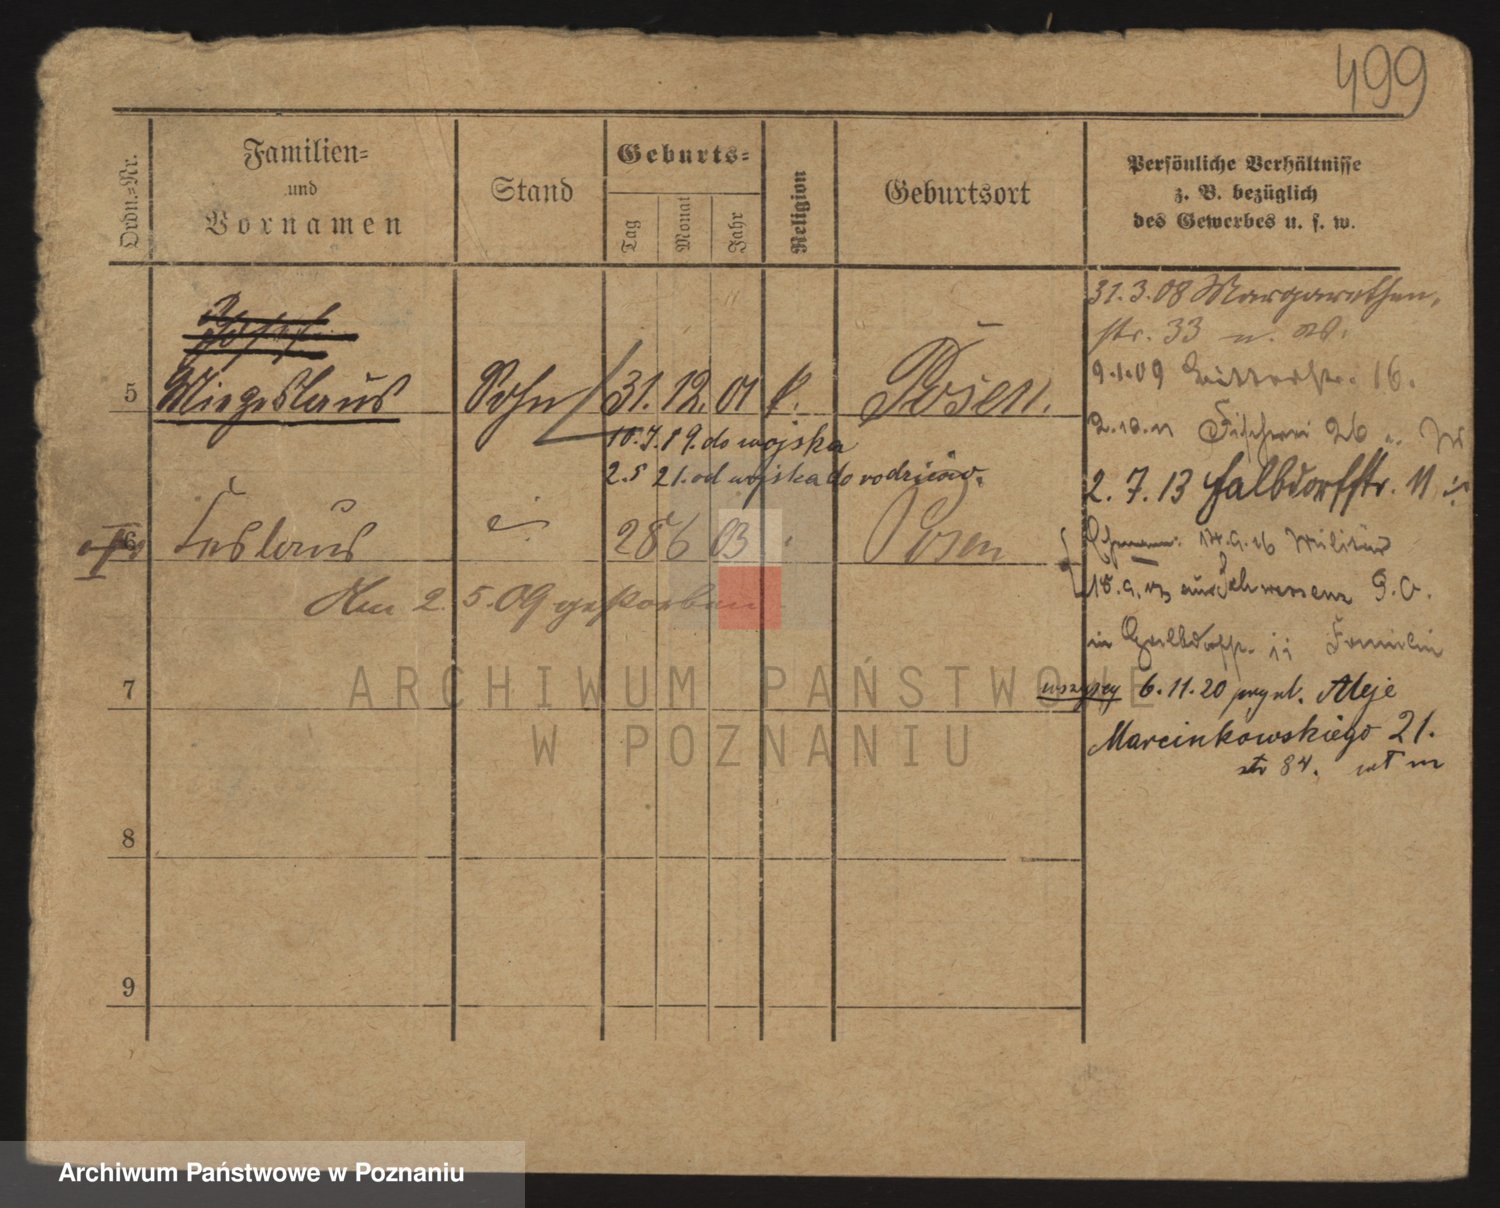 499
Ordn.-Nr.
Familien-
und
Vornamen
Stand
Geburts-
Tag
Monat
Jahr
Religion
Geburtsort
Persönliche Verhältnisse
z. B. bezüglich
des Gewerbes u. s. w.
31.3.08 Margarethen,
str. 33 u. W.
9.1.09 Ritterstr. 16.
2.10.11 Fischerei 26
2.7.13 Halbdorfstr. 11
14.9.16 Militär
aus Schwersenz
in Halbdorfstr. Familie
wszyscy 6.11.20 Aleje
Marcinkowskiego 21.
str 84.
Josef
5 Miezeslaus Sohn 31. 12. 01 k. Posen.
10.7.19. do wojska
2.5 21. od wojska do rodziców.
6 Ceslaus 28 6 03 Posen
Am 2.5.09 gestorben
7
8
9
ARCHIWUM PAŃSTWOWE
W POZNANIU
Archiwum Państwowe w Poznaniu